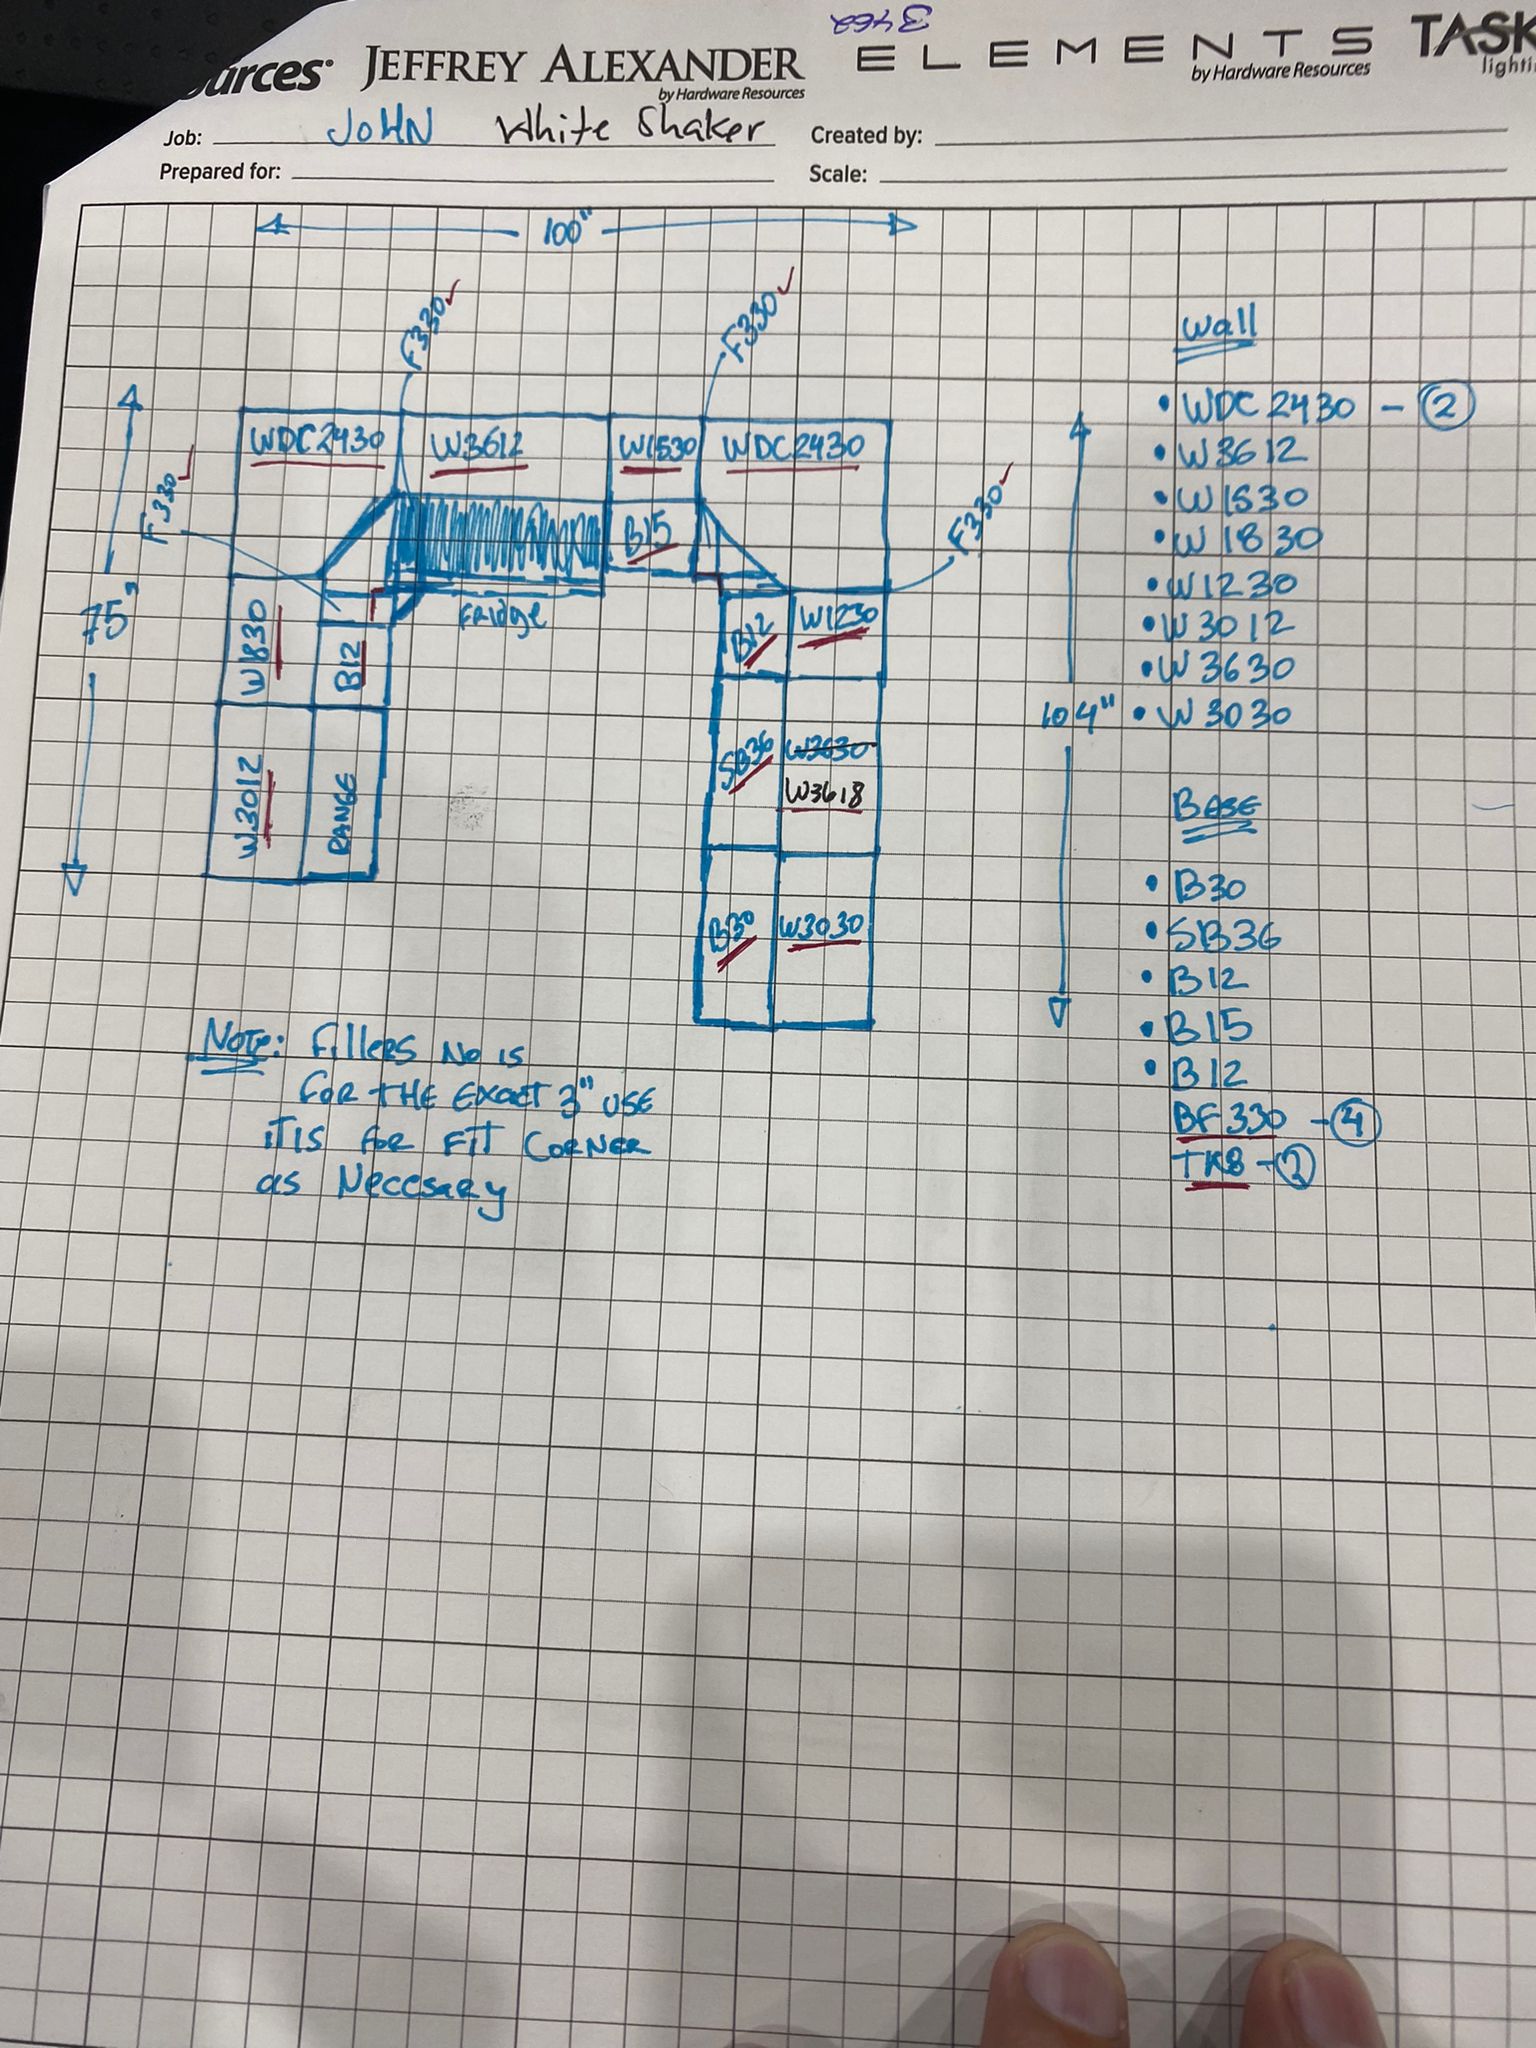 urces
JEFFREY ALEXANDER
by Hardware Resources
3462
ELEMENTS
by Hardware Resources
TASK
lighti
Job: JOHN White Shaker
Created by:
Prepared for:
Scale:
100"
F330
F330
WDC2430
W3612
W1530
WDC2430
F330
F330
B15
Fridge
75"
W1830
B12
B12
W1230
W3012
RANGE
SB36
W3630
W3618
B30
W3030
104"
Wall
• WDC 2430 - 2
• W3612
• W1530
• W1830
• W1230
• W3012
• W3630
• W3030
BASE
• B30
• SB36
• B12
• B15
• B12
BF330 - 4
TK8 -
Note: Fillers No is
FOR THE EXACT 3" USE
iT IS FOR FIT CORNER
as Neccesary